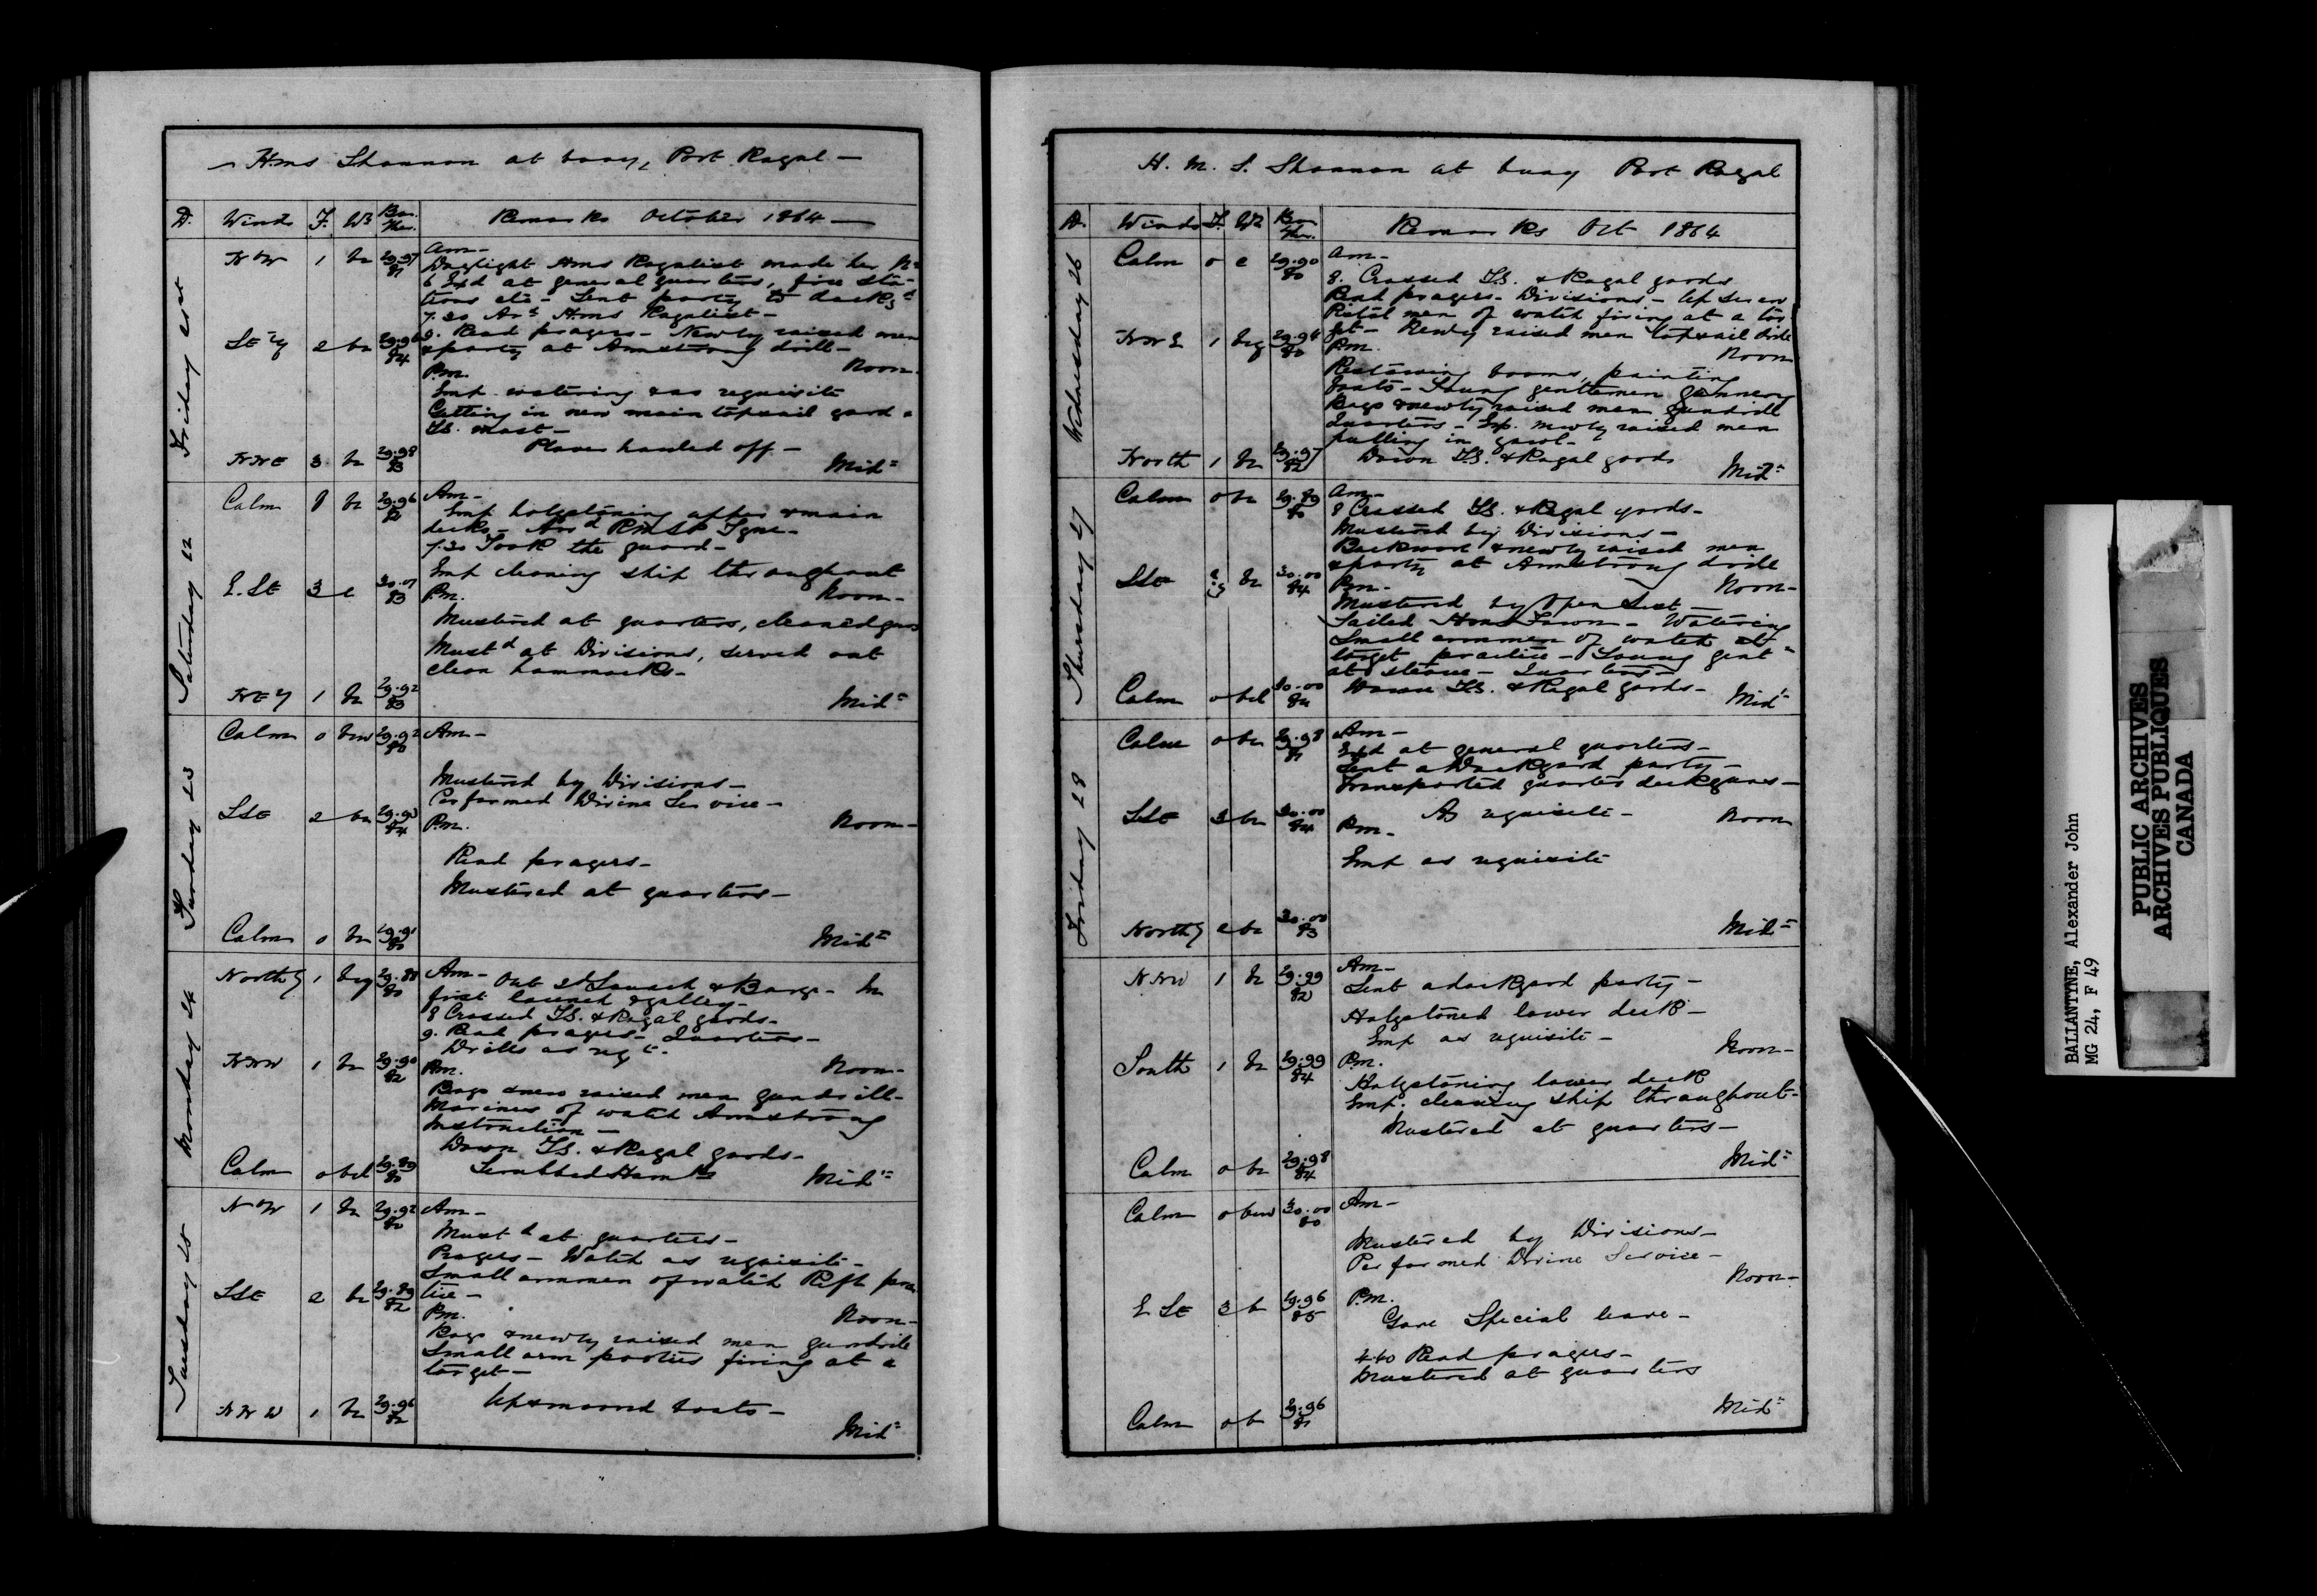 H.m.s Shannon at buoy, Port Royal —
D. Winds F. Wr Bar. Ther. Remarks October 1864 —
Friday 21st
Am —
N W 1 bc 29.97 81 Daylight Hms Royalist made her No
6 Exd at general quarters, fire sta-
tions etc — Sent party to dockyd
7.30 Ard Hms Royalist —
SE'ly 2 bc 29.96 84 9. Read prayers — Newly raised men
& party at Armstrong drill —
Noon —
P.m.
Emp. watering & as requisite
Getting in new main topsail yard &
T.S. mast —
Plover hauled off —
NNE 3 bc 29.98 83 Midt
Saturday 22
Calm 0 bc 29.96 82 Am —
Emp holystoning after & main
decks — Arrd RMSP Tyne —
7.30 Took the guard —
Emp cleaning ship throughout
E.SE 3 c 30.07 83 P.m. Noon —
Mustered at quarters, cleaned guns
Mustd at Divisions, served out
clean hammocks —
NE'y 1 bc 29.92 83 Midt
Sunday 23
Calm 0 bcw 29.92 80 Am —
Mustered by Divisions —
Performed Divine Service —
SSE 2 bc 29.93 84 P.m. Noon —
Read prayers —
Mustered at quarters —
Calm 0 bc 29.91 80 Midt
Monday 24
North'y 1 bcq 29.88 80 Am — Out 2d Launch & Barge — In
first launch & galley —
8 Crossed T.S. & Royal yards —
9. Read prayers — Quarters —
Drills as reqte
NNW 1 bc 29.90 82 P.m. Noon —
Boys & new raised men gundrill —
Marines of watch Armstrong
Instruction —
Down T.S. & Royal yards —
Calm 0 bcl 29.89 80 Scrubbed Hamks Midt
Tuesday 25
N W 1 bc 29.92 80 Am —
Mustd at quarters —
Prayers — Watch as requisite —
Small armmen of watch Rifle prac
SSE 2 bc 29.89 82 tice —
P.m. Noon —
Boys & newly raised men gundrill
Small arm parties firing at a
target —
Up & moored boats —
NNW 1 bc 29.96 82 Midt
H. M. S. Shannon at buoy Port Royal
D. Winds F. Wr Bar Ther. Remarks Oct 1864
Wednesday 26
Calm 0 c 29.90 80 Am —
8. Crossed T.S. & Royal yards
Read prayers — Divisions —
Pistol men of watch firing at a tar
get — Newly raised men topsail drill
NNE 1 bcq 29.94 80 P.m. Noon
Restowing booms, painting
boats — Young gentlemen Gunnery
Boys & newly raised men gundrill
Quarters — Exp. newly raised men
pulling in yawl —
North 1 bc 29.97 82 Down T.S. & Royal yards Midt
Thursday 27
Calm 0 bc 29.89 80 Am —
8 Crossed T.S. & Royal yards —
Mustered by Divisions —
Backward & newly raised men
& party at Armstrong drill
SSE 2.3 bc 30.00 84 P.m — Noon —
Mustered by Open List —
Sailed Hms Fawn — Watering
Small armmen of watch at
target practice — Young gentn
at steam — Quarters —
Calm 0 bcl 30.00 84 Down T.S. & Royal yards — Midt
Friday 28
Calm 0 bc 29.98 81 Am —
Exd at general quarters —
Sent a Dockyard party —
Transported quarter deck guns —
As requisite —
SSE 3 bc 30.00 84 P.m — Noon
Emp as requisite
North'y 2 bc 30.00 83 Midt
N.NW 1 bc 29.99 82 Am —
Sent a dockyard party —
Holystoned lower deck —
Emp as requisite —
South 1 bc 29.99 84 P.m. Noon —
Holystoning lower deck
Emp. cleaning ship throughout —
Mustered at quarters —
Calm 0 bc 29.98 84 Midt
Calm 0 bcw 30.00 80 Am —
Mustered by Divisions —
Performed Divine Service —
Noon —
E SE 3 b 29.96 85 P.m.
Gave Special leave —
4.40 Read prayers —
Mustered at quarters
Calm 0 b 29.96 81 Midt
BALLANTYNE, Alexander John
MG 24, F 49
PUBLIC ARCHIVES
ARCHIVES PUBLIQUES
CANADA